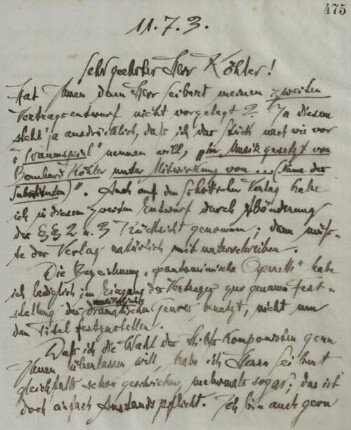 475
11.7.3.
Sehr geehrter Herr Köhler!
Hat Ihnen denn Herr Seibert meinen zweiten
Vertragsentwurf nicht vorgelegt? In diesem
steht ja ausdrücklich, daß ich das Stück nach wie vor
„Traumspiel" nennen will, „in Musik gesetzt von
Bernhard Köhler unter Mitwirkung von ... (Name des
)". Auch auf den Verlag habe
ich in diesem zweiten Entwurf durch Abänderung
der §§ 2 u. 3 Rücksicht genommen; dann müß-
te der Verlag natürlich mit unterschreiben.
Die Bezeichnung „pantomimische Operette" habe
ich lediglich im Eingang des Vertrages zur genauen Fest-
stellung des dramatischen Genres benutzt, nicht um
den Titel festzustellen.
Daß ich die Wahl des Komponisten gern
Ihnen überlassen will, habe ich Herrn Seibert
gleichfalls schon geschrieben, mehrmals sogar; das ist
doch einfach Anstandspflicht. Ich bin auch gern